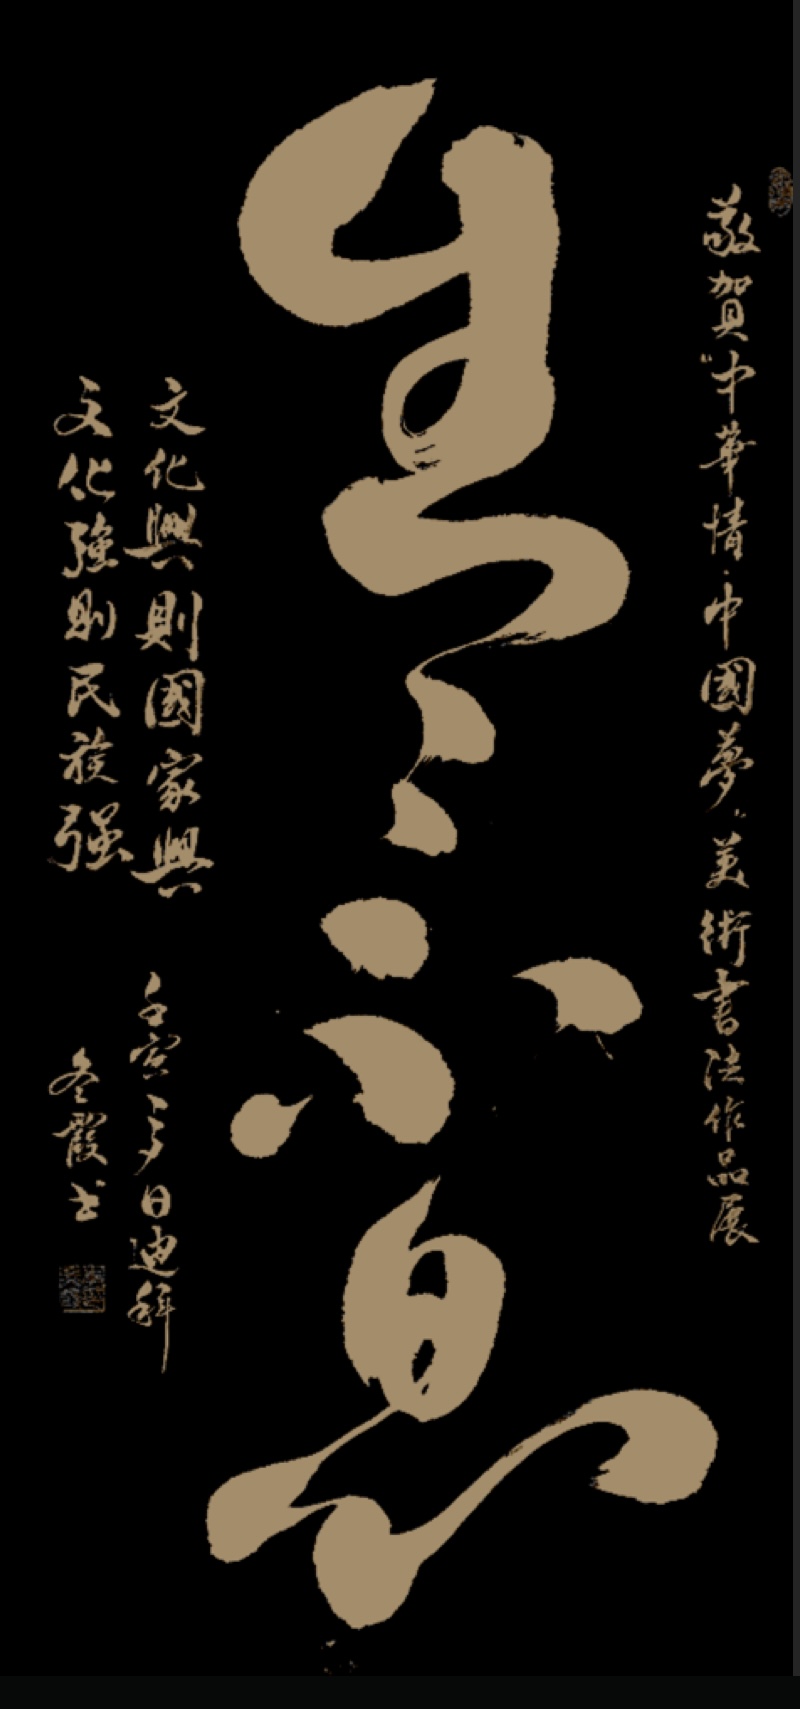 敬賀"中華情·中國夢"美術書法作品展
生生不息
文化興則國家興
文化強則民族强
壬寅冬日迪拜
冬霞书